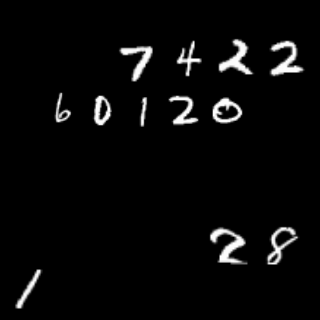 7422
60120
28
1